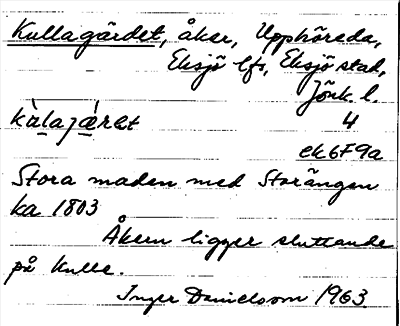 Kullagärdet, åker, Upphöreda,
Eksjö lfs, Eksjö stad,
Jönk. l.
kùlajæ̀ret 4
ek6F9a
Stora maden med Storängen
ka 1803
Åkern ligger sluttande
på kulle.
Inger Danielsson 1963